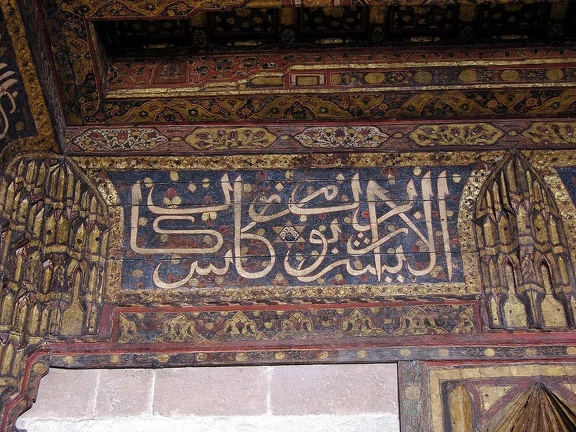 الابرار يشربون من كاس كان